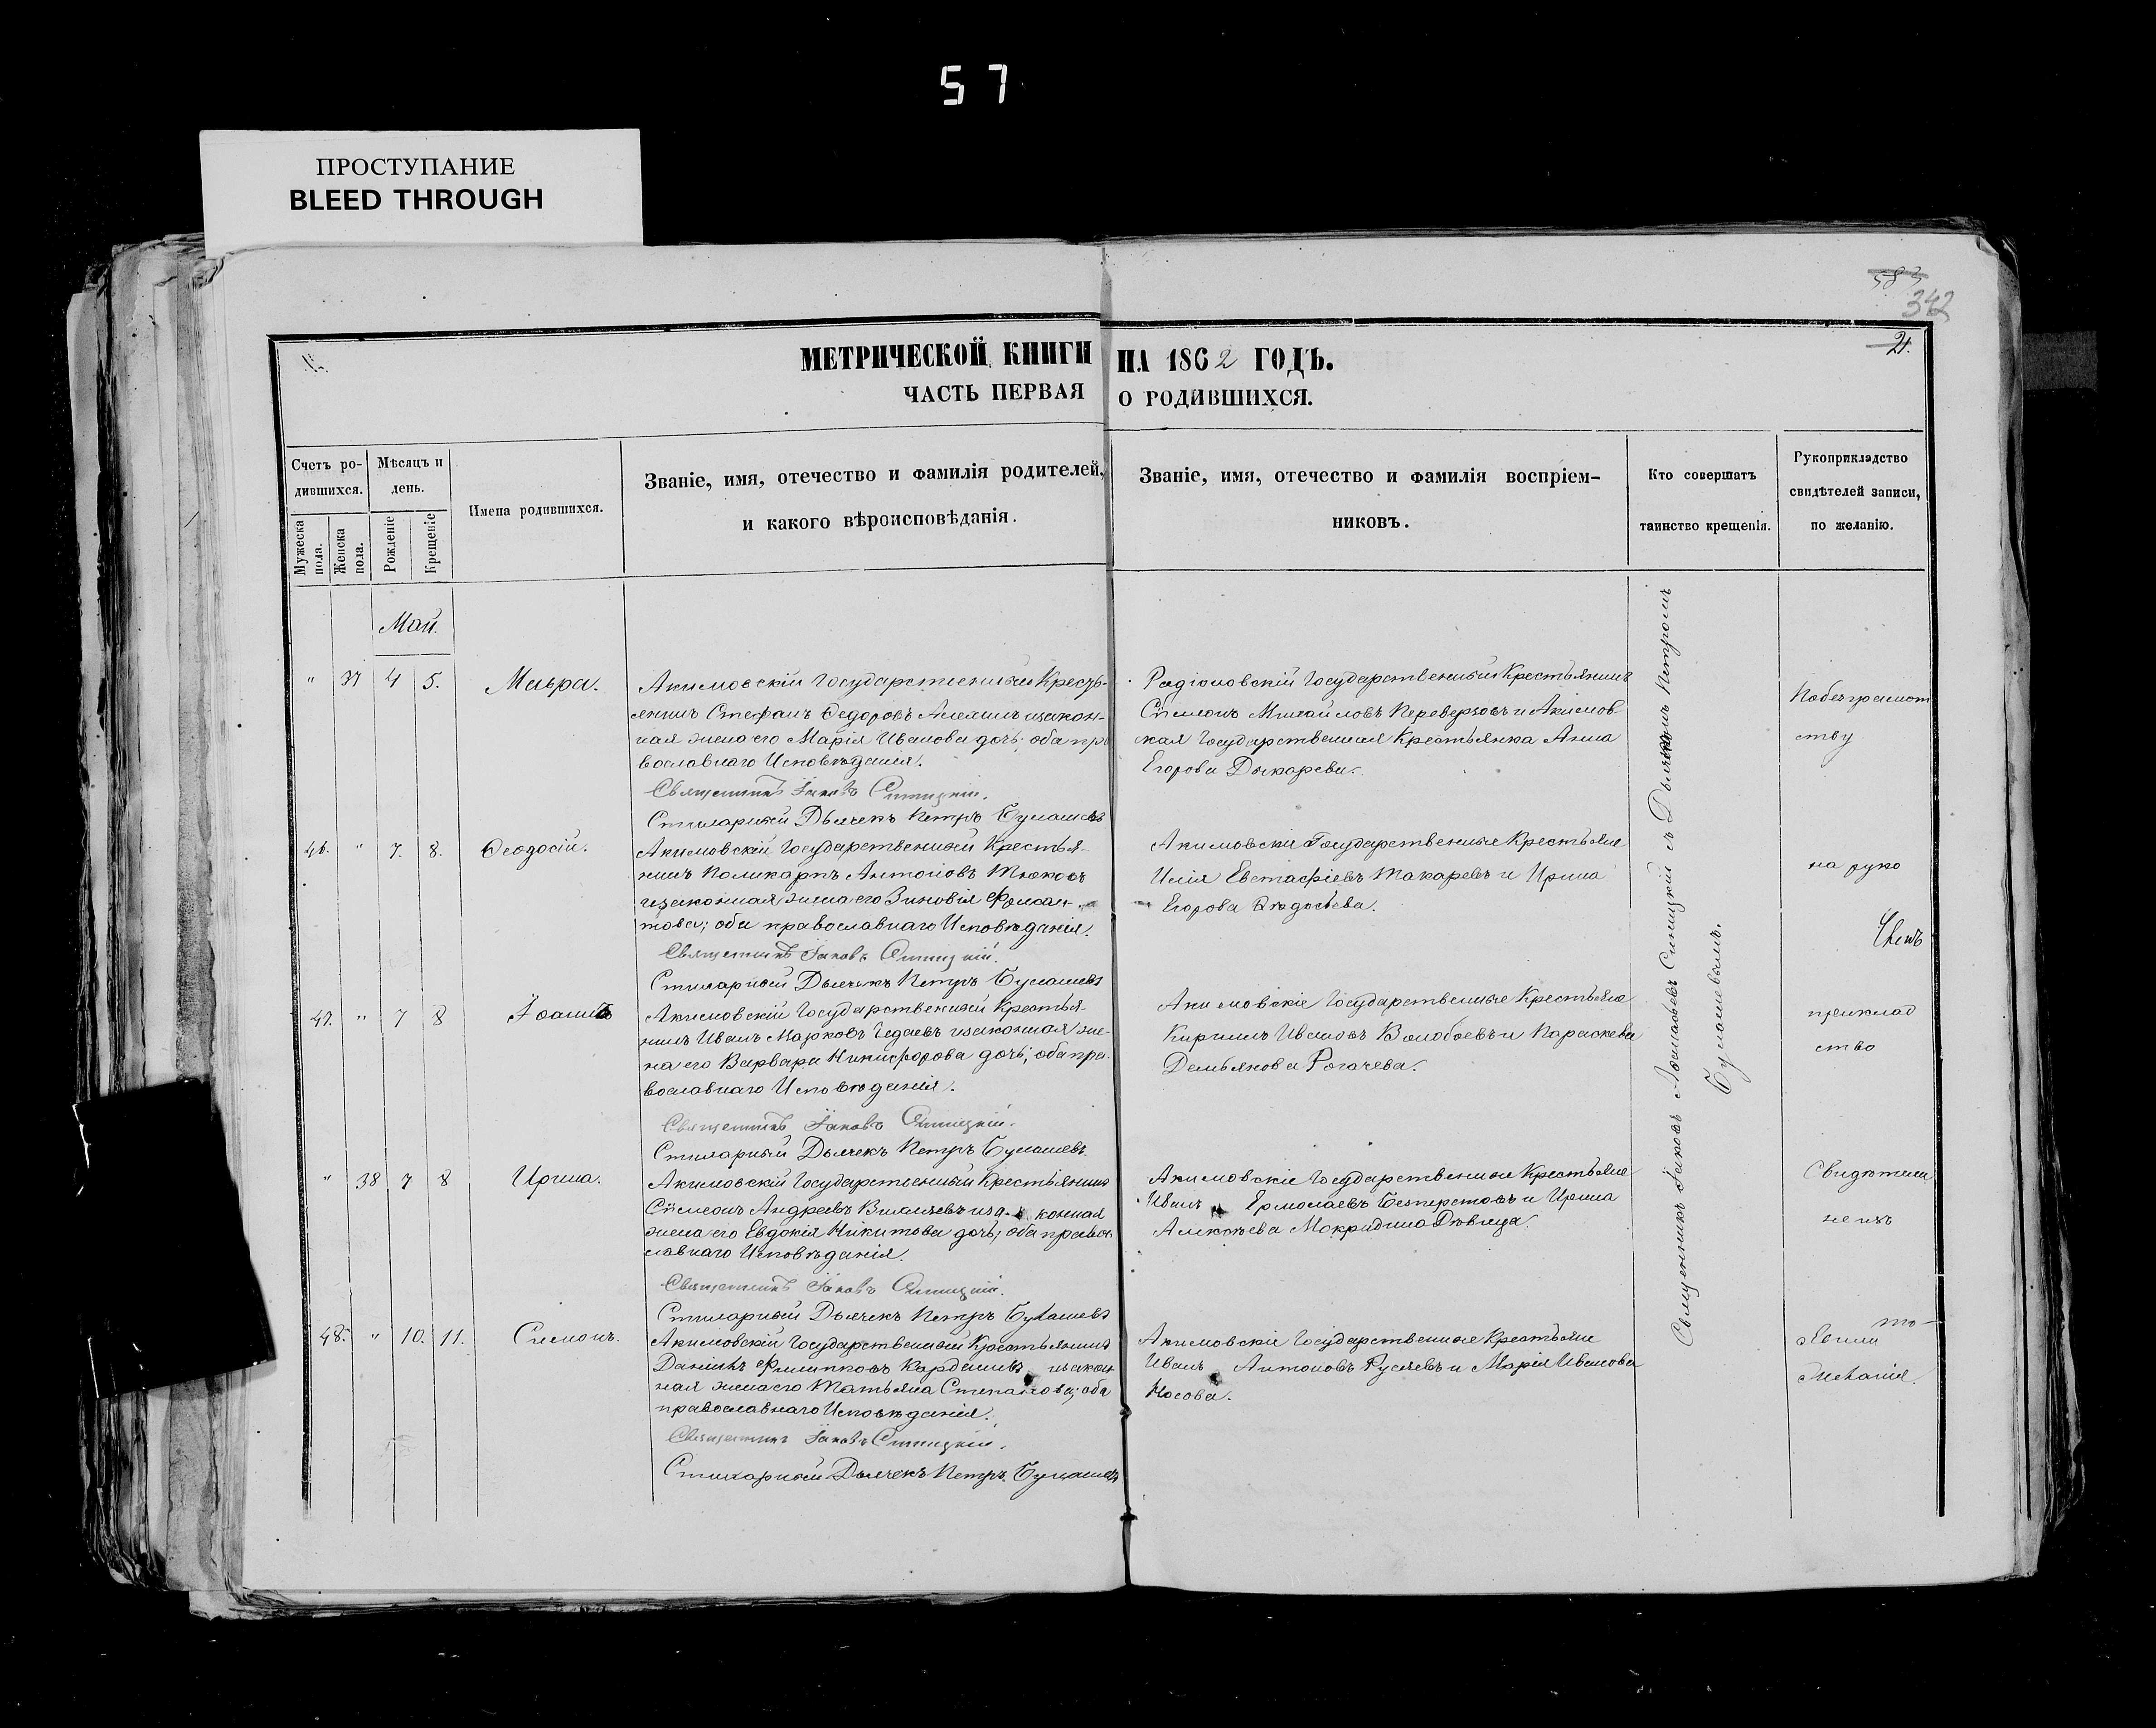 57
ПРОСТУПАНИЕ
BLEED THROUGH
583
342
21.
МЕТРИЧЕСКОЙ КНИГИ НА 1862 ГОДЪ.
ЧАСТЬ ПЕРВАЯ О РОДИВШИХСЯ.
Счетъ ро-
дившихся.
Мужеска пола.
Женска пола.
Мѣсяцъ и
день.
Рожденіе
Крещеніе
Имена родившихся.
Званіе, имя, отечество и фамилія родителей,
и какого вѣроисповѣданія.
Званіе, имя, отечество и фамилія воспріем-
никовъ.
Кто совершатъ
таинство крещенія.
Рукоприкладство
свидѣтелей записи,
по желанію.
Май.
" 37 4 5. Мавра.
Акимовскій Государственный Кресть-
янинъ Стефанъ Ѳедоровъ изакон-
ная жена его Марія Иванова дочь; оба пра
вославнаго Исповѣданія.
Священникъ Іаковъ Синицкій.
Стихарный Дьячекъ Петръ Булашевъ
Радіоновскій Государственный Крестьянинъ
Сѵмеонъ Михайловъ Переверзовъ и Акимов
ская Государственная Крестьянка Анна
Егорова Дикарева.
46. " 7. 8. Ѳеодосій.
Акимовскій Государственный Крестья-
нинъ Поликарпъ Антоновъ
изаконная жена его Зиновія
това; оба православнаго Исповѣданія.
Священникъ Іаковъ Синицкій.
Стихарный Дьячекъ Петръ Булашевъ
Акимовскіе Государственные Крестьяне
Илія Евстафіевъ Токаревъ и Ирина
Егорова Ѳедосѣева.
47. " 7 8 Іоаннъ
Акимовскій Государственный Крестья-
нинъ Иванъ Марковъ изаконная же-
на его Варвара Никифорова дочь; оба пра-
вославнаго Исповѣданія.
Священникъ Іаковъ Синицкій.
Стихарный Дьячекъ Петръ Булашевъ.
Акимовскіе Государственные Крестьяне
Кириллъ Ивановъ Волобоевъ и Параскева
Демьянова Рогачева.
" 38 7 8 Ирина.
Акимовскій Государственный Крестьянинъ
Сѵмеонъ Андреевъ иза-конная
жена его Евдокія Никитова дочь; оба право
славнаго Исповѣданія.
Священникъ Іаковъ Синицкій.
Стихарный Дьячекъ Петръ Булашевъ
Акимовскіе Государственные Крестьяне
Иванъ Ермолаевъ Безперстовъ и Ирина
Алексѣева Мокридина Дѣвица.
48. " 10. 11. Симонъ.
Акимовскій Государственный Крестьянинъ
Даніилъ Филипповъ Кардашевъ изакон
ная жена его Татьяна Степанова; оба
православнаго Исповѣданія.
Священникъ Іаковъ Синицкій.
Стихарный Дьячекъ Петръ Булашевъ
Акимовскіе Государственные Крестьяне
Иванъ Антоновъ Гусаевъ и Марія Иванова
Носова.
Священникъ Іаковъ Синицкій съ Дьячкомъ Петромъ
Булашевымъ.
Побезграмот
ству
на руко
приклад
ство
Свидѣтели
не изъ
явили
желанія.